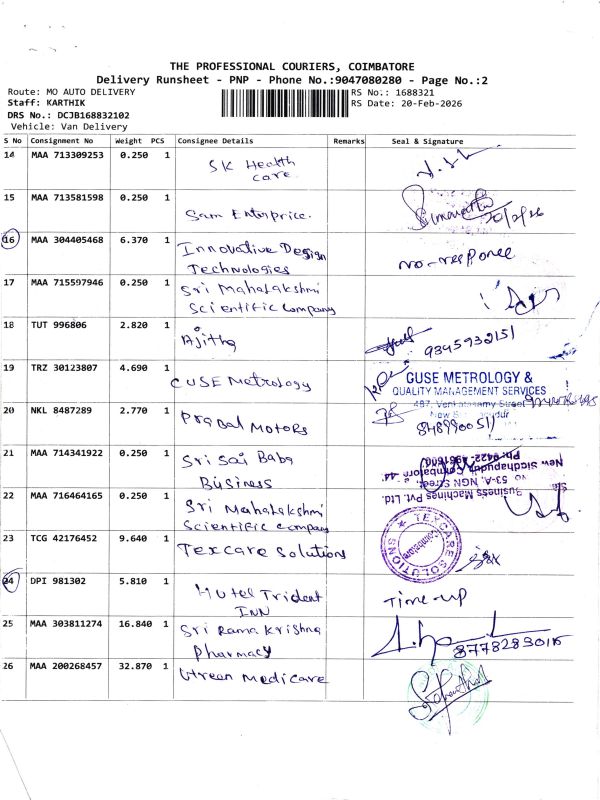 THE PROFESSIONAL COURIERS, COIMBATORE
Delivery Runsheet - PNP - Phone No.:9047080280 - Page No.:2
Route: MO AUTO DELIVERY
Staff: KARTHIK
DRS No.: DCJB168832102
Vehicle: Van Delivery
RS No.: 1688321
RS Date: 20-Feb-2026
S No Consignment No Weight PCS Consignee Details Remarks Seal & Signature
14 MAA 713309253 0.250 1 SK Health
care.
15 MAA 713581598 0.250 1 Sam Enterprice. 20/2/26
16 MAA 304405468 6.370 1 Innovative Design
Technologies
no-responce
17 MAA 715597946 0.250 1 Sri Mahalakshmi
Scientific Company
18 TUT 996806 2.820 1 Ajitha 9345932151
19 TRZ 30123807 4.690 1 CUSE Metrology
GUSE METROLOGY &
QUALITY MANAGEMENT SERVICES
20 NKL 8487289 2.770 1 Prabal Motors
21 MAA 714341922 0.250 1 Sri Sai Baba
Business
Business Machines Pvt. Ltd.
53-A, NGN Street,
New Siddhapudur, Coimbatore-44.
22 MAA 716464165 0.250 1 Sri Mahalakshmi
Scientific Company
23 TCG 42176452 9.640 1 Texcare Solutions
TEXCARE SOLUTIONS
Coimbatore
24 DPI 981302 5.810 1 Hotel Trident
INN
Time-up
25 MAA 303811274 16.840 1 Sri Rama Krishna
Pharmacy
26 MAA 200268457 32.870 1 Green Medicare